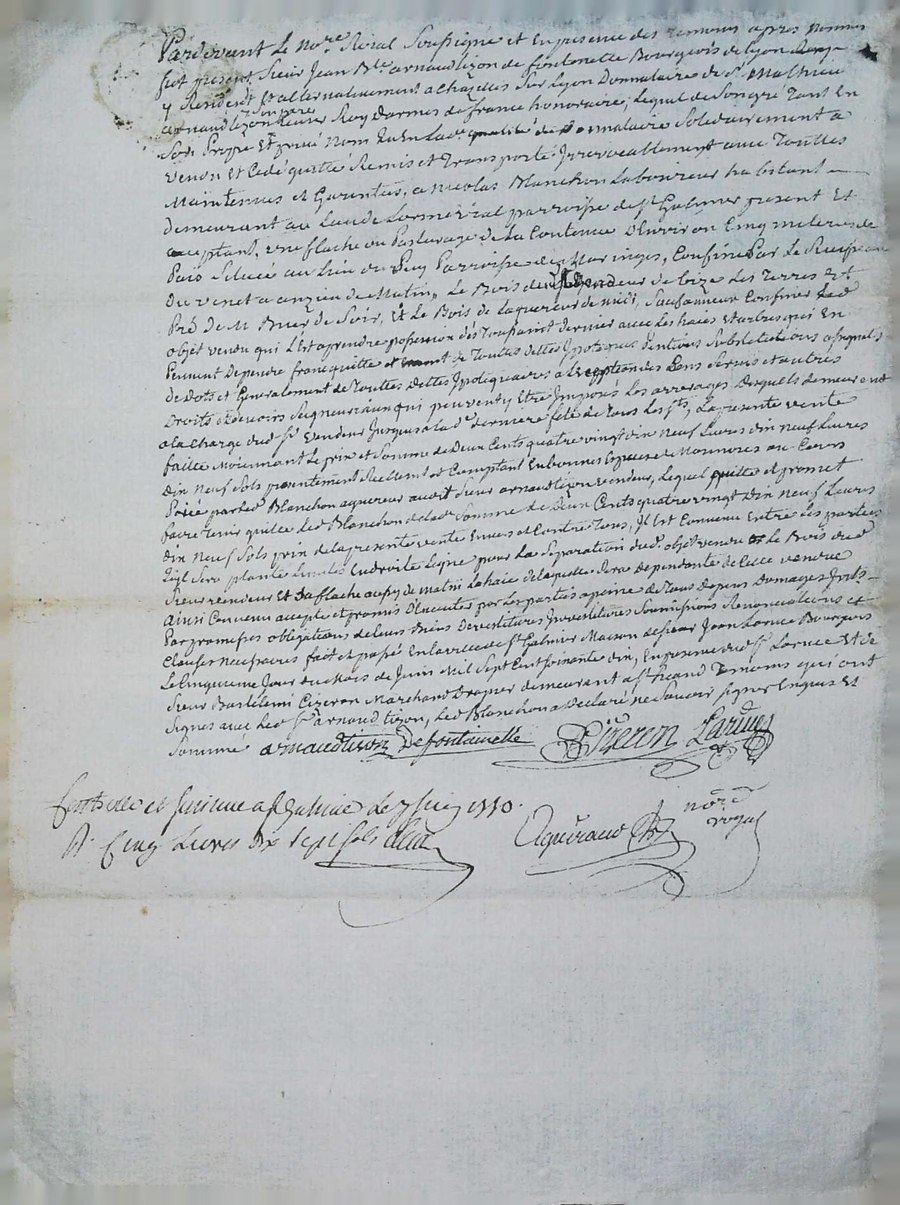 Pardevant Le no.re Roial Soussigné et En presence des temoins apres nommés
fut present Sieur Jean B.te arnaud tizon de fontenelle Bourgeois de lyon
y Resident Et alternativement a chazelles Sur Lyon Donnataire de S.r Mathieu
arnaud tizon Son pere Roy Darmes de france honoraire, Lequel de Son gré Tant En
Son Propre Et privé Nom qu'En Lad. qualité de Donnataire Solidairement a
vendu Et Cedé quitté Remis et Transporté Irrevocablement avec Touttes
Maintenues et Garenties, a Nicolas Blanchon Laboureur habitant
demeurant au parroisse de S.t Galmier present Et
acceptant, une flache ou Pasturage de La Contenue D'Environ Cinq meterées de
Païs Scituée au Lieu du Puy Parroisse de Maringes, Confiné Par Le Ruisseau
du venet a de Matin, Le Bois dud. vendeur de bize Les Terres Et
Pré de M. de Soir, Et Le Bois de Laquereur de midi, Sauf
objet vendu qui L'Est aprendre possession dès Toussaint dernier avec Les haies Et arbres qui En
Peuvent Dependre franc quitte de Touttes dettes Ipoteques Pentions Substitutions
de Dots et Generalement de Touttes Dettes Ipotiquaires a L'exception des Cens Servis et autres
Droits et devoirs Seigneuriaux qui peuvent y Etre Imposés Les arrerages Desquels demeurent
a la Charge dud. S.r vendeur Jusques a lad. derniere fete de Tous Les S.ts, La presente vente
faitte Moiennant Le prix et Somme de Deux Cents quatre vingt dix Neuf Livres
Dix Neuf Sols presentement Reellement et Comptant En bonnes Especes de Monnoies au Cours
Païée par led. Blanchon aquereur aud. Sieur arnaud tizon vendeur, Lequel quitte et promet
faire Tenir quitte Led. Blanchon de lad. Somme de Deux Cents quatre vingt Dix Neuf Livres
Dix Neuf Sols prix de la presente vente Envers et Contre Tous, Il Est Convenu Entre Les parties
qu'il Sera planté Limites En droite Ligne pour La Separation dud. objet vendu et Le Bois dud.
Sieur vendeur Et La flache au Puy de matin La haie de laquelle Sera dependante de
Ainsi Convenu accepté et promis D'Executer par Les parties a peine de Tous Depens Domages Intts
Par promesses obligations de Leurs Biens Soumissions Renonciations et
Clauses fait et passé En la ville de S.t Galmier Maison de Sieur Jean Larue Bourgeois
Le Cinquieme Jour du Mois de Juin Mil Sept Cent Soixante dix, En presence dud. S.r Larue Et de
Sieur Bartelemi Cizeron Marchand Drapier demeurant a Temoins qui ont
Signés avec Led. S.r arnaud tizon, Led. Blanchon a Declaré ne Savoir Signer Enquis Et
Sommé arnaud tison De fontanelle Cizeron Larüe
Controllé et a S.t Galmier Le 7 Juin 1770.
R. Cinq Livres dix sept sols
no.re royal